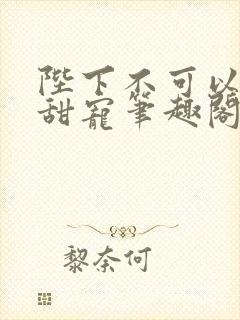 陛下不可以
甜宠筆趣閣
黎奈何